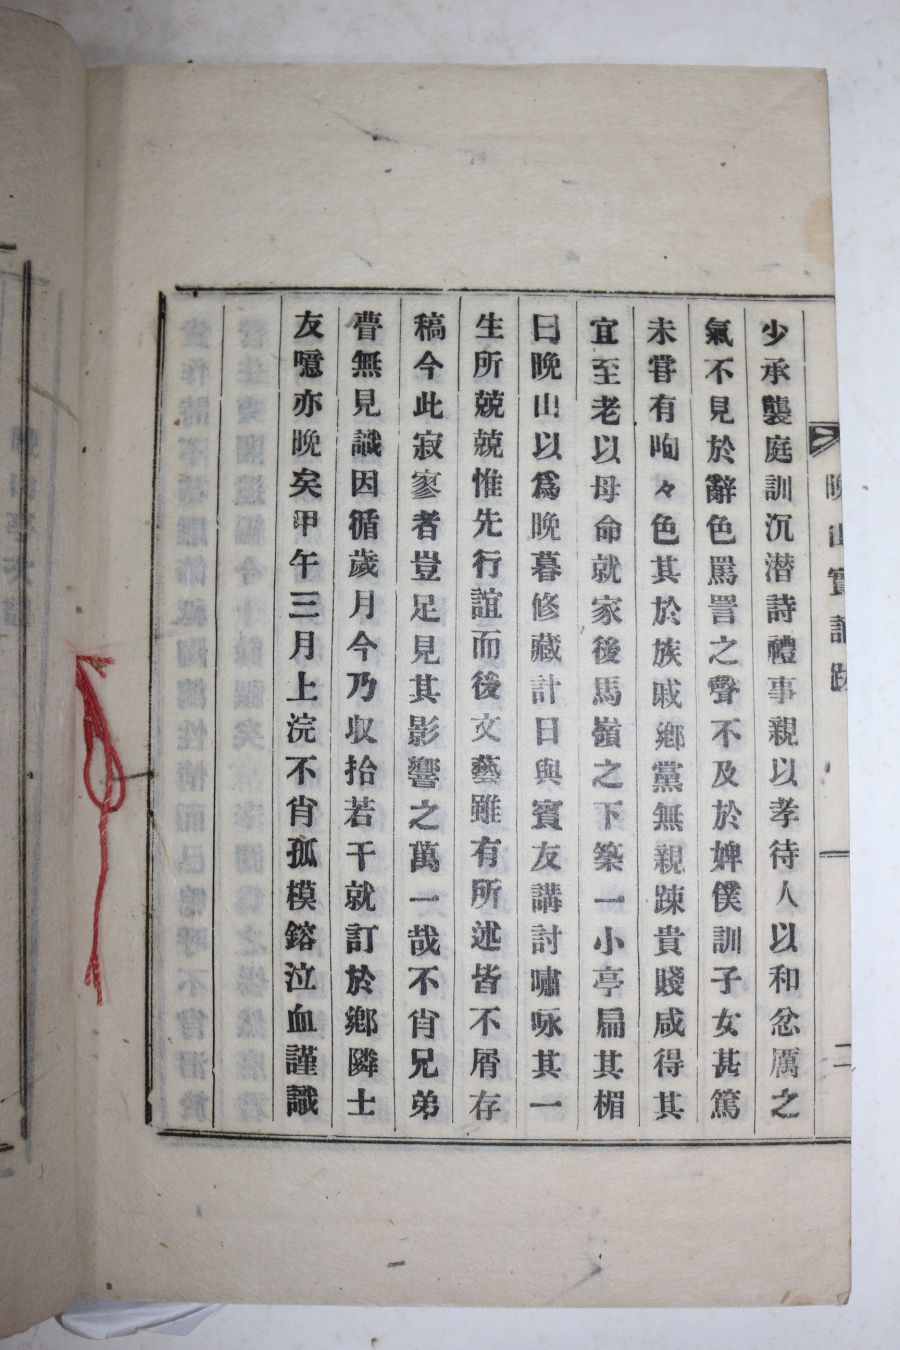 晩山實記跋
二
少承襲庭訓沉潜詩禮事親以孝待人以和忿厲之
氣不見於辭色罵詈之聲不及於婢僕訓子女甚篤
未甞有呴々色其於族戚鄉黨無親踈貴賤咸得其
宜至老以母命就家後馬嶺之下築一小亭扁其楣
曰晩山以爲晩暮修藏計日與賓友講討嘯咏其一
生所兢兢惟先行誼而後文藝雖有所述皆不屑存
稿今此寂寥者豈足見其影響之萬一哉不肖兄弟
瞢無見識因循歲月今乃収拾若干就訂於鄉隣士
友噫亦晩矣甲午三月上浣不肖孤模鎔泣血謹識